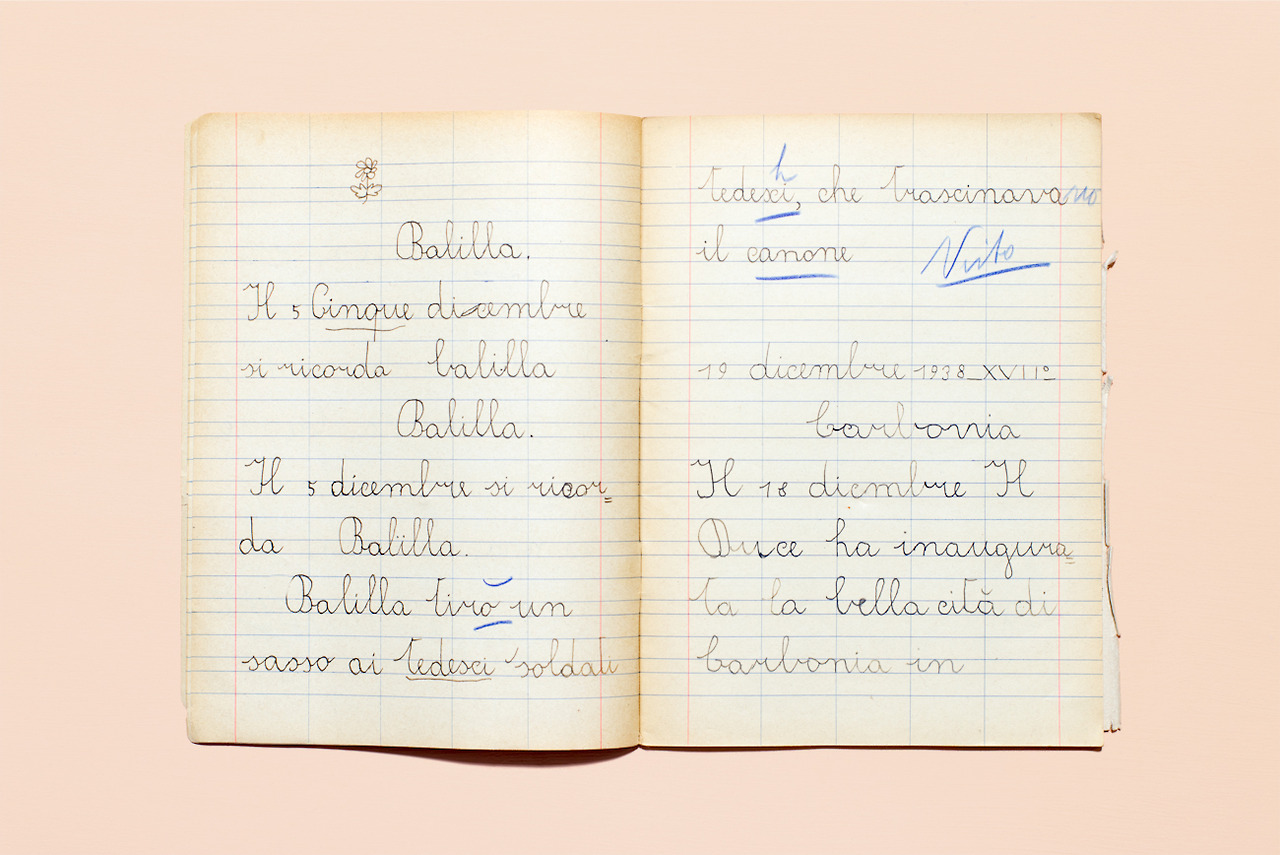 Balilla.
Il 5 Cinque dicembre
si ricorda balilla
Balilla.
Il 5 dicembre si ricor=
da Balilla.
Balilla tirò un
sasso ai tedesci soldati
h
tedesci, che trascinavano
il canone Visto
19 dicembre 1938_XVII°
Carbonia
Il 18 dicmbre Il
Duce ha inaugura=
ta la bella cità di
Carbonia in